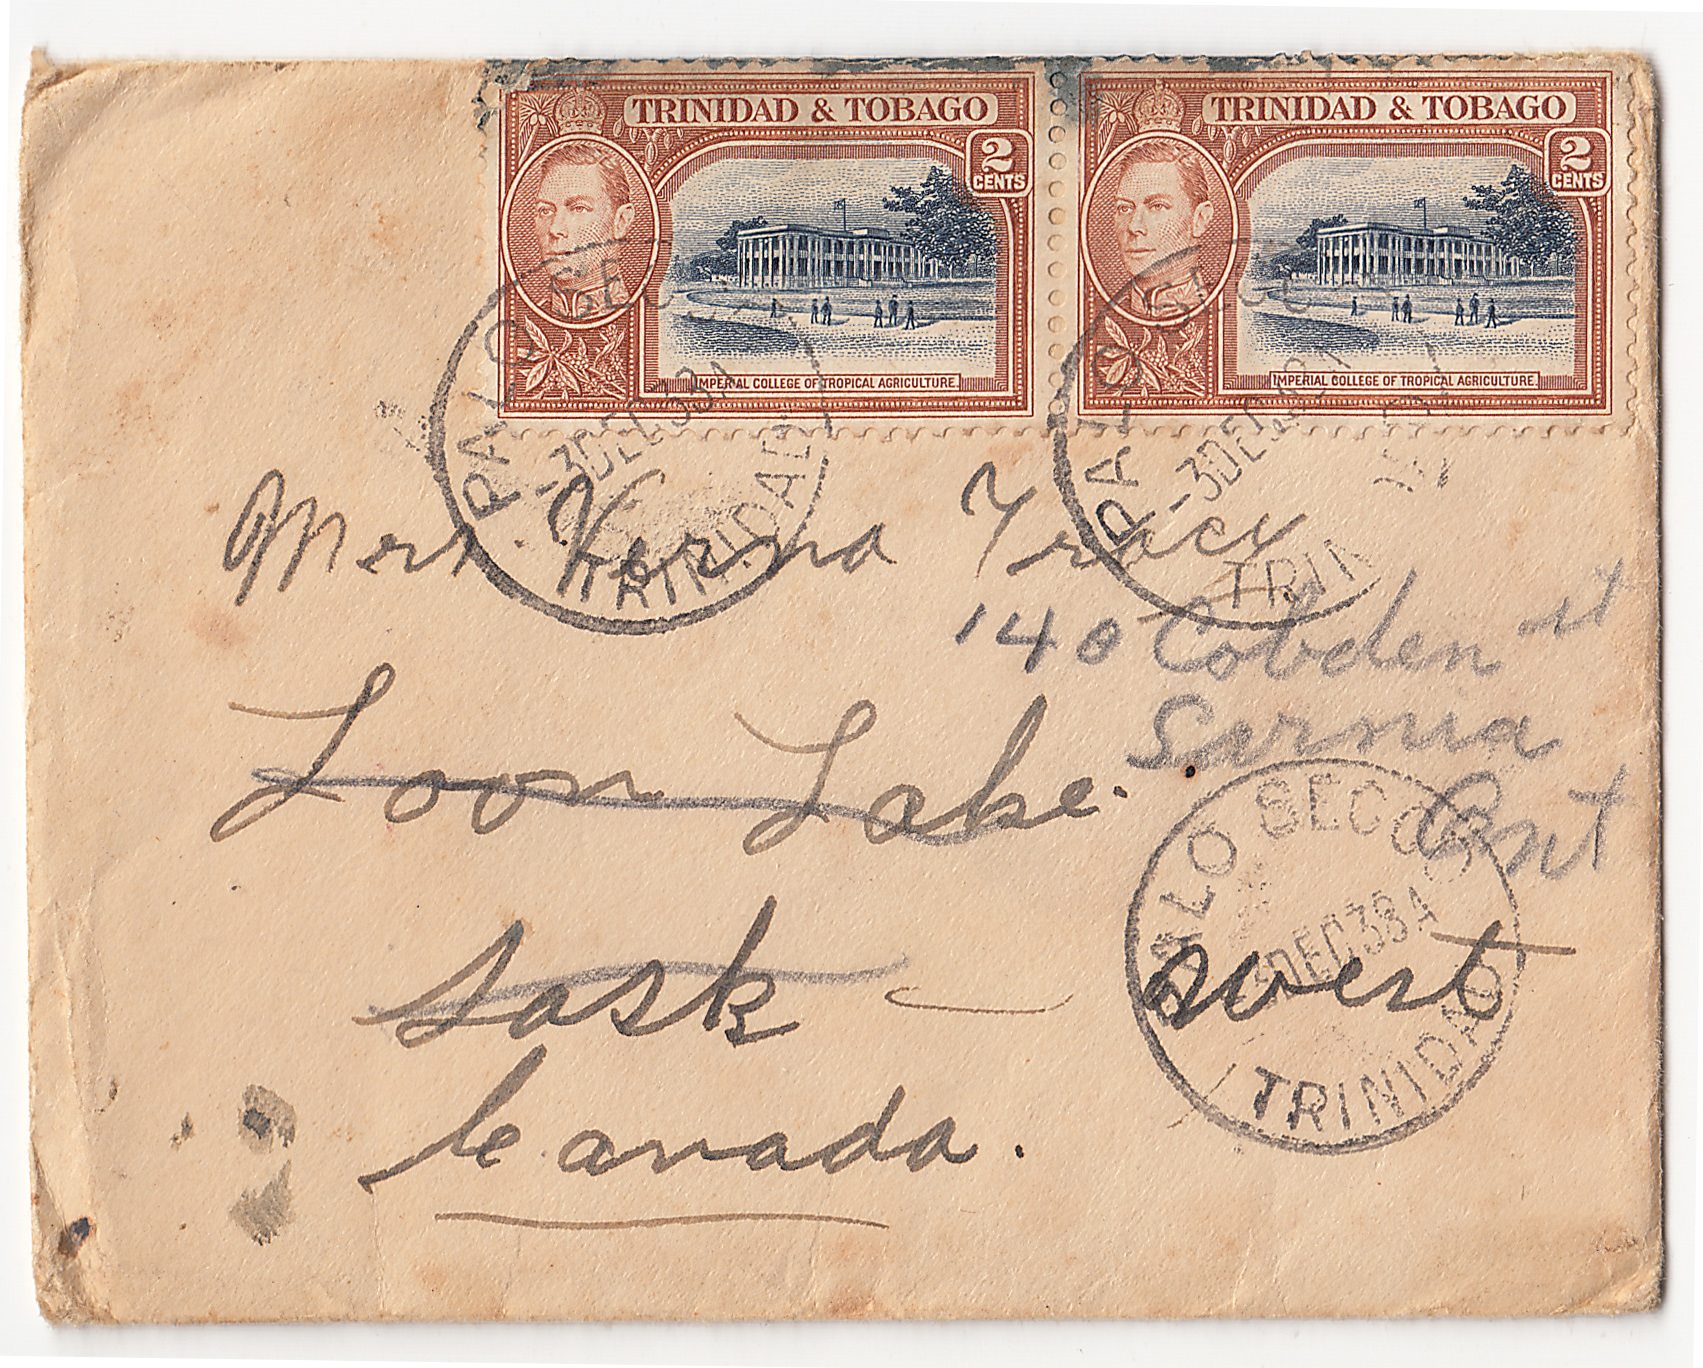 TRINIDAD & TOBAGO
2
CENTS
IMPERIAL COLLEGE OF TROPICAL AGRICULTURE.
TRINIDAD & TOBAGO
2
CENTS
IMPERIAL COLLEGE OF TROPICAL AGRICULTURE.
PALO SECO
-3DEC38A
TRINIDAD
PALO SECO
-3DEC38A
TRINIDAD
Verna Tracy
140 Cobden st
Sarnia
Ont
Loon Lake.
Sask
west
Canada.
PALO SECO
3DEC38A
TRINIDAD